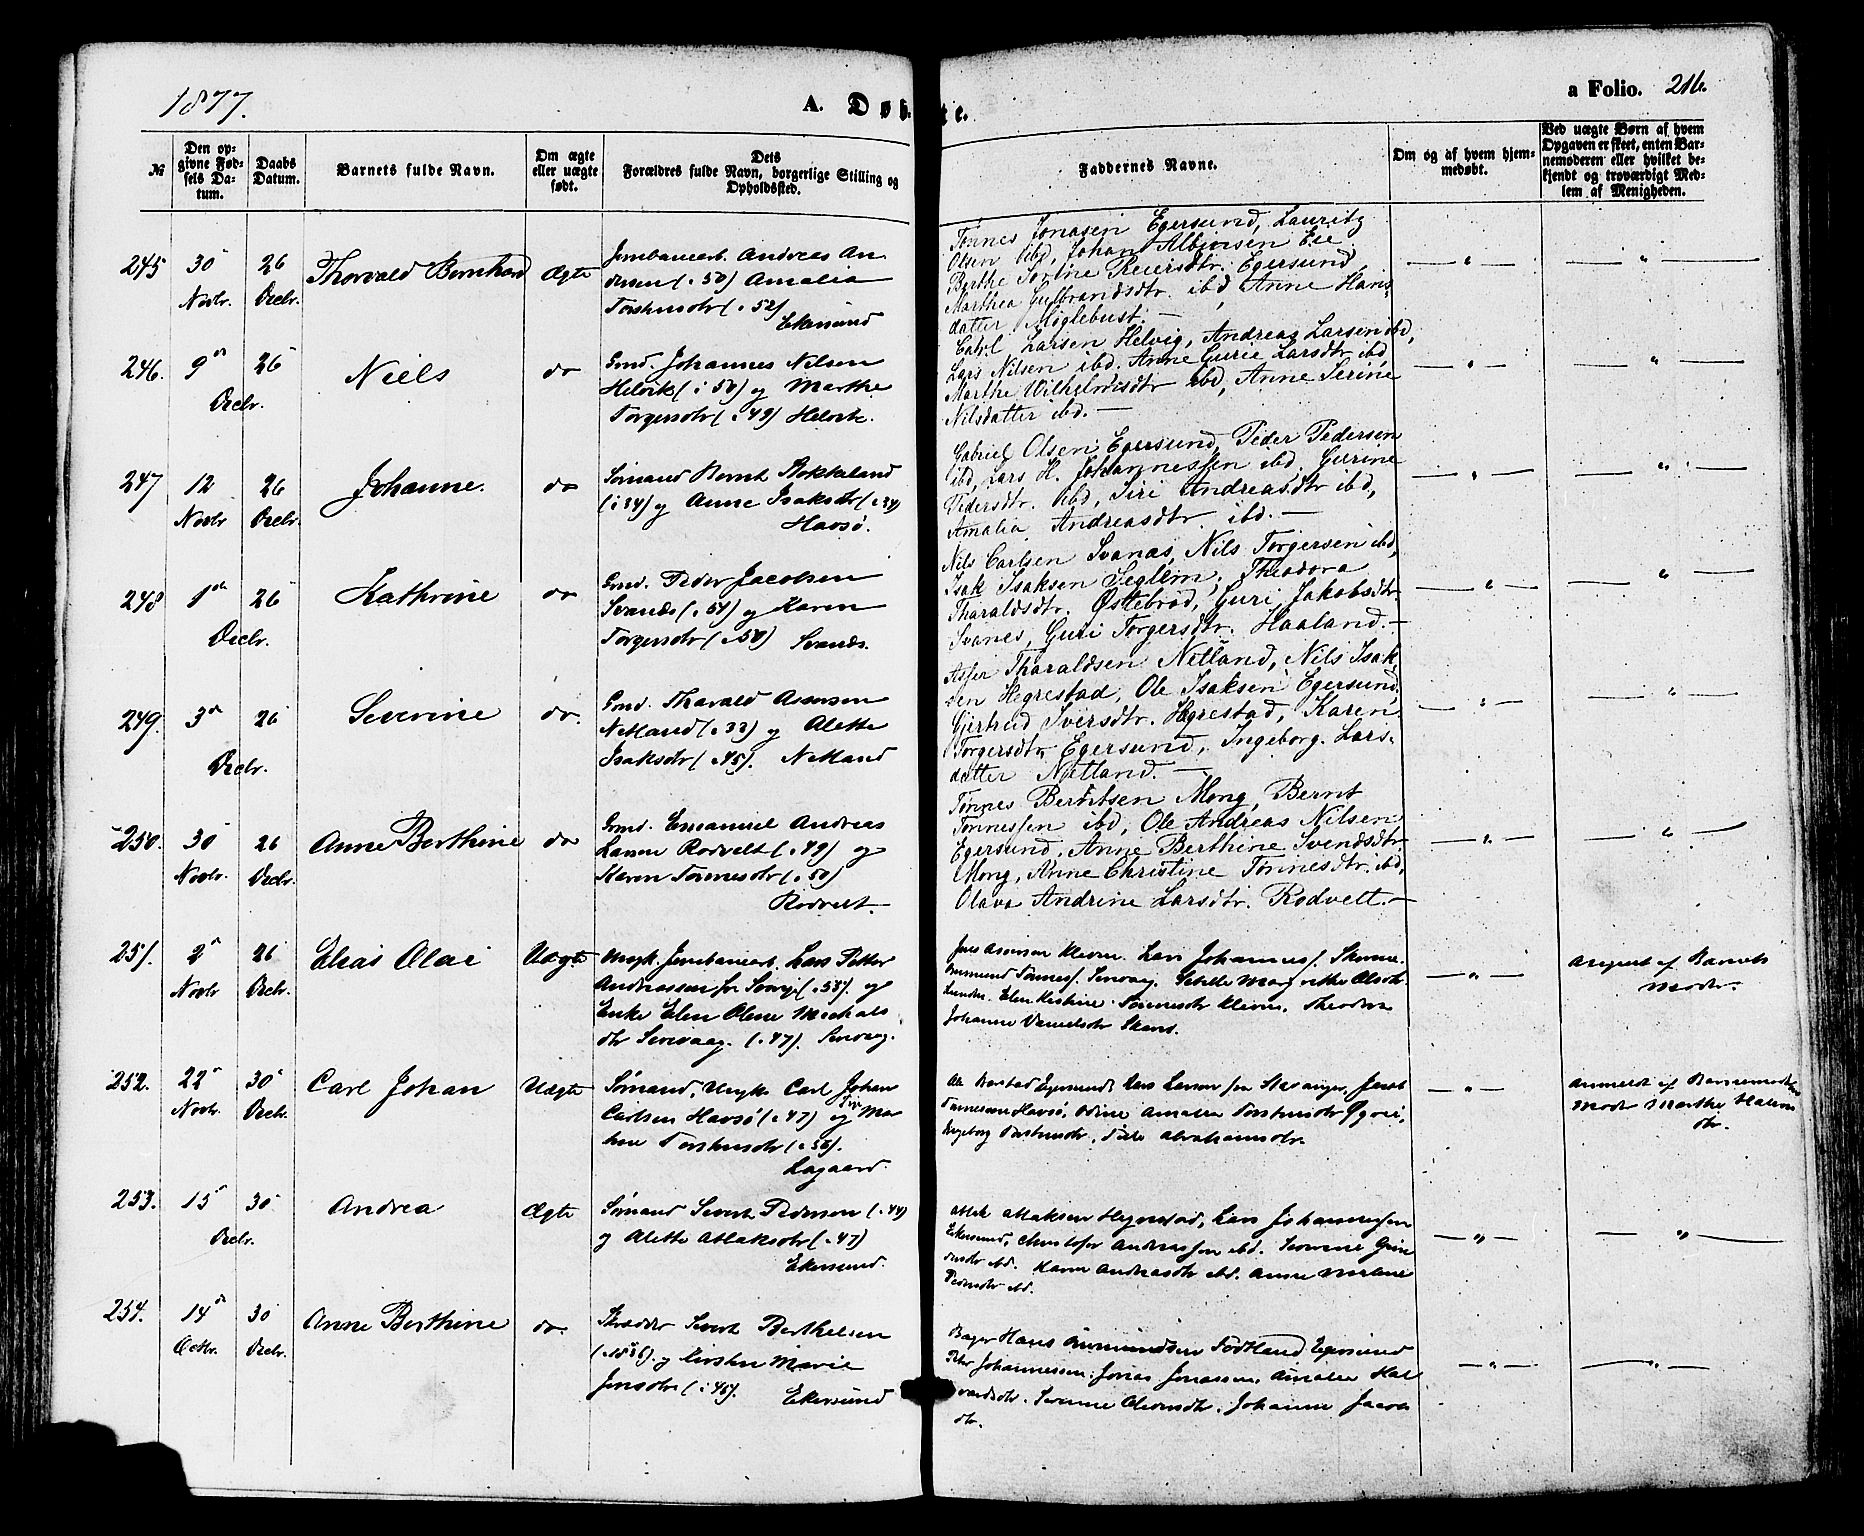 1877.
A. Døbte.
a Folio. 216.
№
Den opgivne Fødsels Datum.
Daabs Datum.
Barnets fulde Navn.
Om ægte eller uægte født.
Dets Forældres fulde Navn, borgerlige Stilling og Opholdssted.
Faddernes Navne.
Om og af hvem hjemmedøbt.
Ved uægte Børn af hvem Opgaven er skeet, enten Barnemoderen eller hvilket bekjendt og troværdigt Medlem af Menigheden.
245 30 Novbr. 26 Decbr. Thorvald Bernhard Ægte
Jernbanearb. Andreas An
dersen (i 50) Amalia
Torstensdtr (i 52)
Ekersund
Tønnes Jonasen Egersund, Lauritz
Olsen ibd, Johan Albjørsen Eie.
Berthe Sorine Reiersdtr. Egersund,
Marthea Gulbrandsdtr. ibd, Anne Hans
datter Møglebust. —
246. 9de Decbr. 26 Niels do
Grmd. Johannes Nilsen
Helvik (i 50) og Marthe
Torgersdtr (i 49) Helvik.
Larsen Helvig, Andreas Larsen ibd,
Lars Nilsen ibd. Anne Gurie Larsdtr ibd,
Marthe Wilhelmsdtr ibd, Anne Serine
Nilsdatter ibd. —
247 12 Novbr 26 Decbr. Johanne. do
Sømand Bernt Stokkeland
(i 34) og Anne Isaksdtr (i 34)
Havsø.
Gabriel Olsen Egersund, Peder Pedersen
ibd, Lars H. Johannessen ibd. Gurine
Pedersdtr. ibd, Siri Andreasdtr ibd,
Amalia Andreasdtr ibd. —
248 1ste Decbr. 26 Kathrine do
Grmd. Peder Jacobsen
Svanæs (i 51) og Karen
Torgersdtr (i 50) Svanæs.
Nils Carlsen Svanæs, Nils Torgersen ibd,
Isak Isaksen Seglem, Theodora
Tharaldsdtr. Østebrød, Guri Jakobsdtr
Svanes, Guri Torgersdtr. Haaland. —
249. 3de Decbr. 26 Severine do.
Grmd. Tharald Assersen
Netland (i 33) og Alette
Isaksdtr (i 45). Netland
Asser Tharaldsen Netland, Nils Isak
sen Hegrestad, Ole Isaksen Egersund,
Gjertrud Sversdtr. Hegrestad, Karen
Torgersdtr Egersund, Ingeborg Lars-
datter Netland. —
250. 30 Novbr. 26 Decbr. Anne Berthine do
Grmd. Emanuel Andreas
Larsen Rodvelt (i 49) og
Karen Tønnesdtr (i 50)
Rodvelt.
Tønnes Berntsen Mong, Bernt
Tønnessen ibd, Ole Andreas Nilsen
Egersund, Anne Berthine Svendsdtr.
Mong, Anne Christine Tønnesdtr. ibd,
Olava Andrine Larsdtr. Rodvelt. —
251. 2de Novbr 26 Decbr. Elias Olai Uægte
Ungk. Jernbanearb. Lars Petter
Andreassen fra (i 58). og
Enke Elen Oline Michals
dtr Sirevaag. (i 47). Sirevaag.
Jens Assersen Klevene. Lars Johannes s.
Tønnes s. Sirevaag.
Elen Kristine Tønnesdtr Klevene. Theodora
Johanne Danielsdtr
Angivet af Barnets
Moder.
252. 22de Novbr. 30 Decbr. Carl Johan Uægte
Sømand, Ungk. Carl Johan
Carlsen Havsø (i 47) og Pige Ma
Torstensdtr (i 56).
Lagaard.
Ole Egersund, Lars Larsen fra Stavanger, Jacob
Tønnesen Havsø, Amalia Torstensdtr
Ingeborg Torstensdtr. Abrahamsdtr.
Anmeldt af Barnemoderens
Moder Marthe
dtr.
253. 15de Decbr. 30 Andrea Ægte
Sømand Sivert Pedersen (i 44)
og Alette Atlaksdtr (i 47)
Ekersund.
Atlak Atlaksen Hegrestad, Lars Johannessen
Ekersund, Christofer Andreassen ibd.
ibd. Karen Andreasdtr ibd. Anne
Pedersdtr ibd.
254. 14de Octbr. 30 Decbr. Anne Berthine do.
Skrædder Sivert Berthelsen
og Kirsten Marie
Jensdtr (i 46).
Ekersund
Bager Hans Fodtland Egersund
Peder Johannessen. Jonas Jonassen. Amalia Hal
vardsdtr. Johanne Jacobs
dtr.